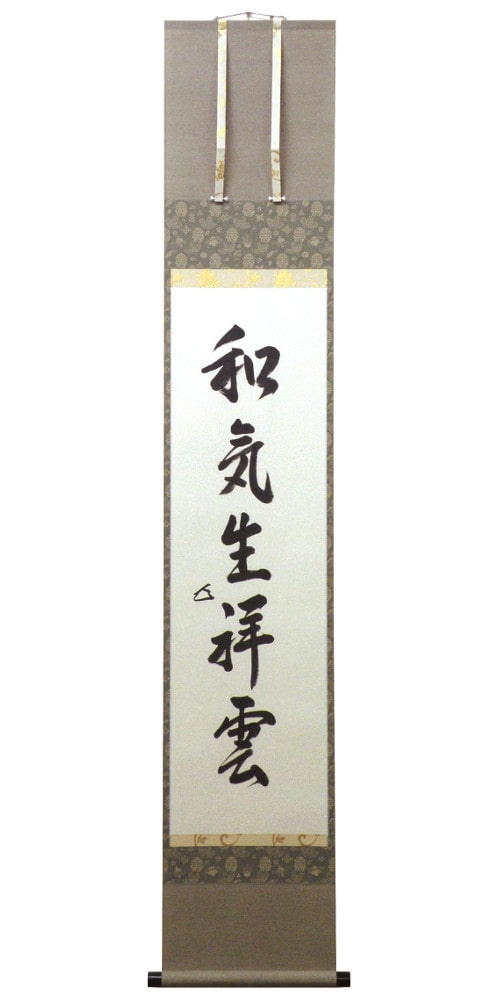 和気生祥雲